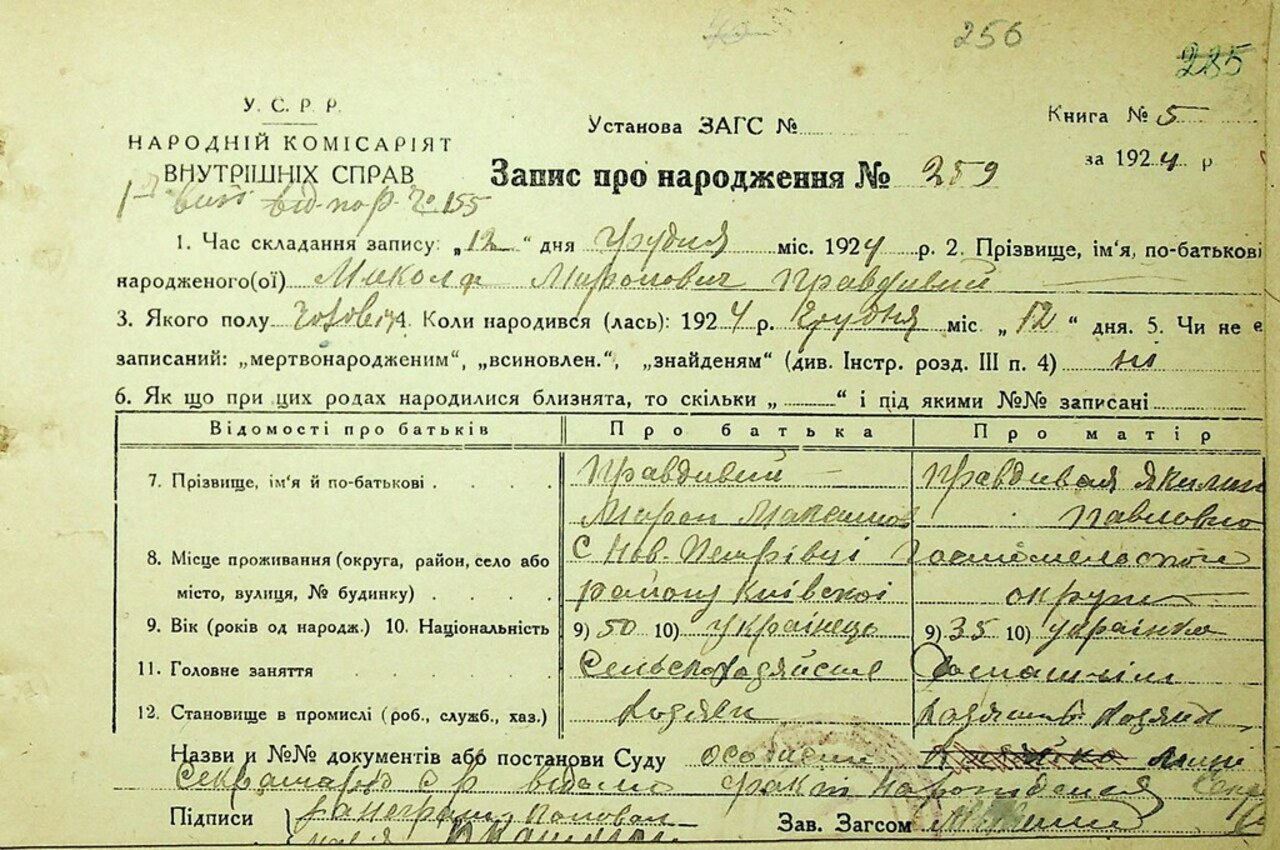 256
285
У. С. Р. Р.
НАРОДНІЙ КОМІСАРІЯТ
ВНУТРІШНІХ СПРАВ
Установа ЗАГС №
Книга № 5
за 1924 р
Запис про народження № 259
від пор. 155
1. Час складання запису: „12" дня Грудня міс. 1924 р. 2. Прізвище, ім'я, по-батькові
народженого(ої) Микола Миронович Правдивий
3. Якого полу чоловіч 4. Коли народився (лась): 1924 р. Грудня міс „12" дня. 5. Чи не є
записаний: „мертвонародженим", „всиновлен.", „знайденям" (див. Інстр. розд. III п. 4) ні
6. Як що при цих родах народилися близнята, то скільки „ " і під якими №№ записані
Відомості про батьків Про батька Про матір
7. Прізвище, ім'я й по-батькові Правдивий Правдивая Якилин
Мирон Максимов Павловно
8. Місце проживання (округа, район, село або С Нов. Петрівці Гостомельской
місто, вулиця, № будинку) району Київскої округи
9. Вік (років од народж.) 10. Національність 9) 50 10) українець 9) 35 10) українка
11. Головне заняття Сельскохозяйство Домашнім
12. Становище в промислі (роб., служб., хаз.) Хозяен
Назви и №№ документів або постанови Суду особисте
Секретарю с р відомо факт народження
Підписи
Зав. Загсом